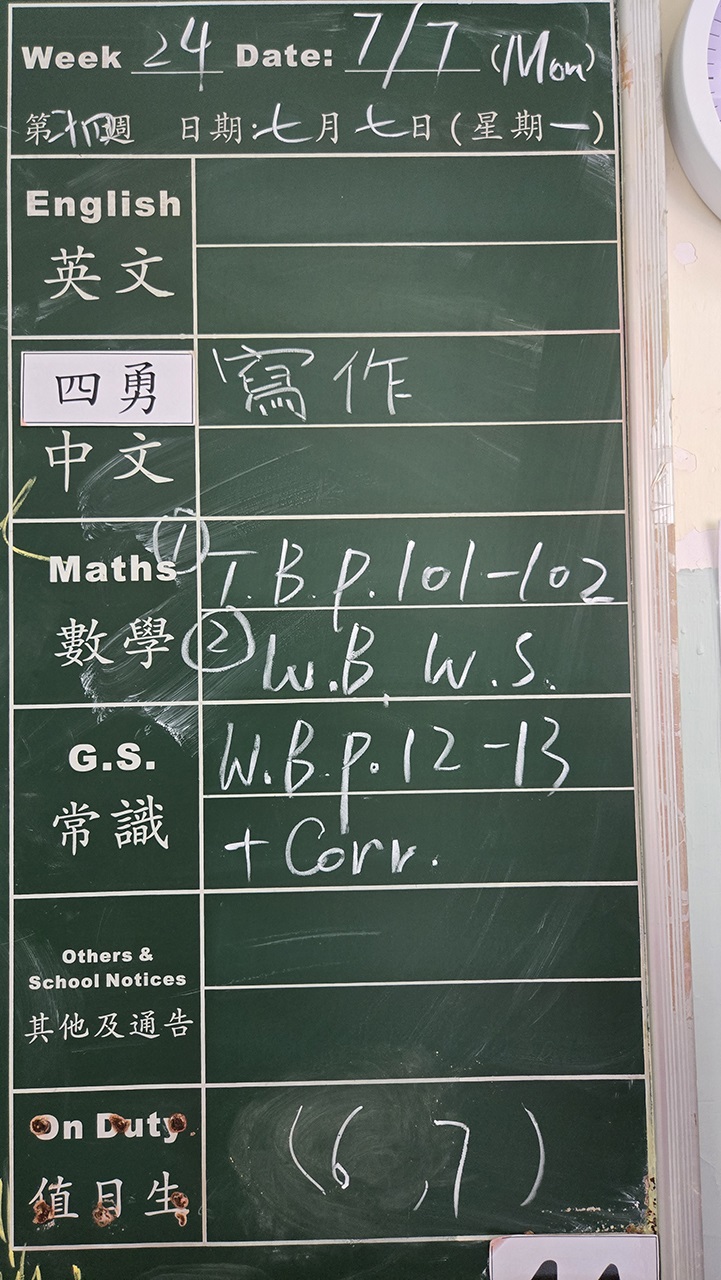 Week 24 Date: 7/7 (Mon)
第廿四週 日期:七月七日(星期一)
English
英文
四勇 寫作
中文
Maths ① T.B.p.101-102
數學 ② W.B. W.S.
G.S. W.B.p.12-13
常識 + Corr.
Others &
School Notices
其他及通告
On Duty (6,7)
值日生